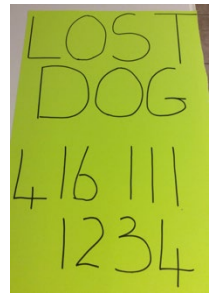 LOST
DOG
416 111
1234